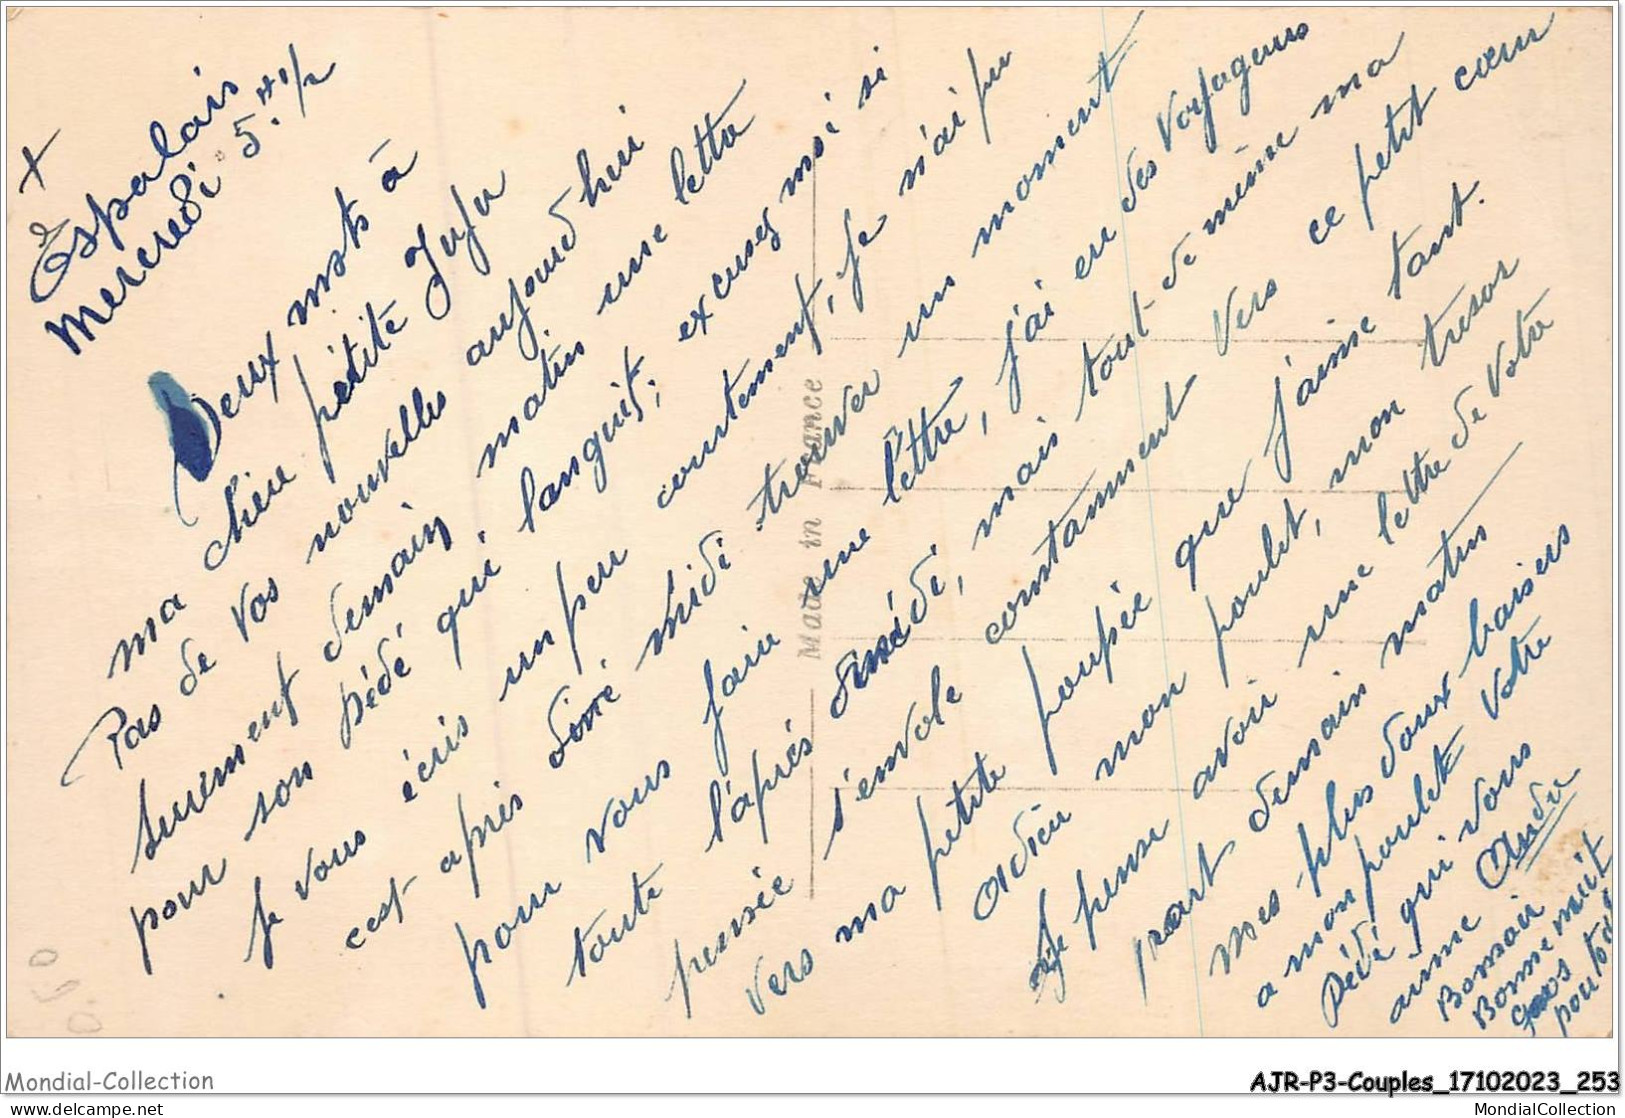 Espalais
Mercredi 5.H 1/2
Deux mots à
ma chère pétite Juju
Pas de vos nouvelles aujourd hui
surément demain matin une lettre
pour son pédé qui languit; excusez moi si
je vous écris un peu contement, je n'ai pu
cest après diné midi trouver un moment
pour vous faire une léttre, j'ai eu des voyageurs
toute l'après midi, mais tout de même ma
pensée s'envole constamment vers ce petit cœur
vers ma petite poupée que j'aime tant.
adieu mon poulet, mon tresor
Je pense avoir une lettre de votre
part demain matin
mes plus doux baisers
a mon poulet votre
Pédé qui vous
aime André
Bonsoir
Bonne nuit
gros
poutous
Made in France
Mondial-Collection
AJR-P3-Couples_17102023_253
delcampe.net
MondialCollection